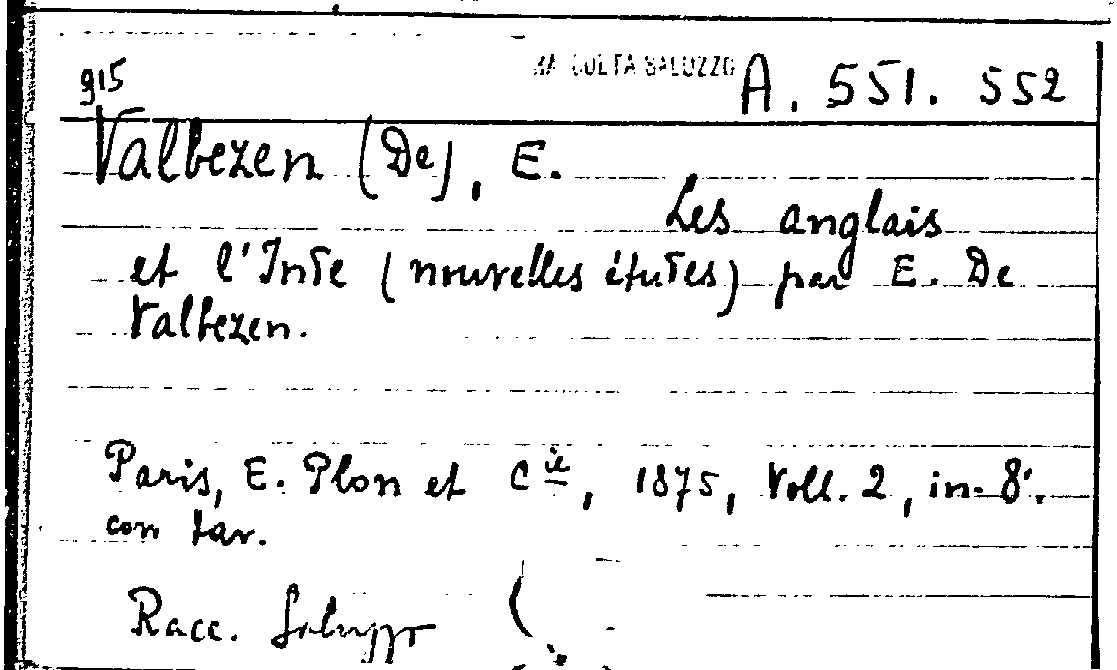 915
RACCOLTA SALUZZO
A. 551. 552
Valbezen (De), E.
Les anglais
et l'Inde (nouvelles études) par E. De
Valbezen.
Paris, E. Plon et Cie, 1875, Voll. 2, in-8°.
con tav.
Racc. Saluzzo (